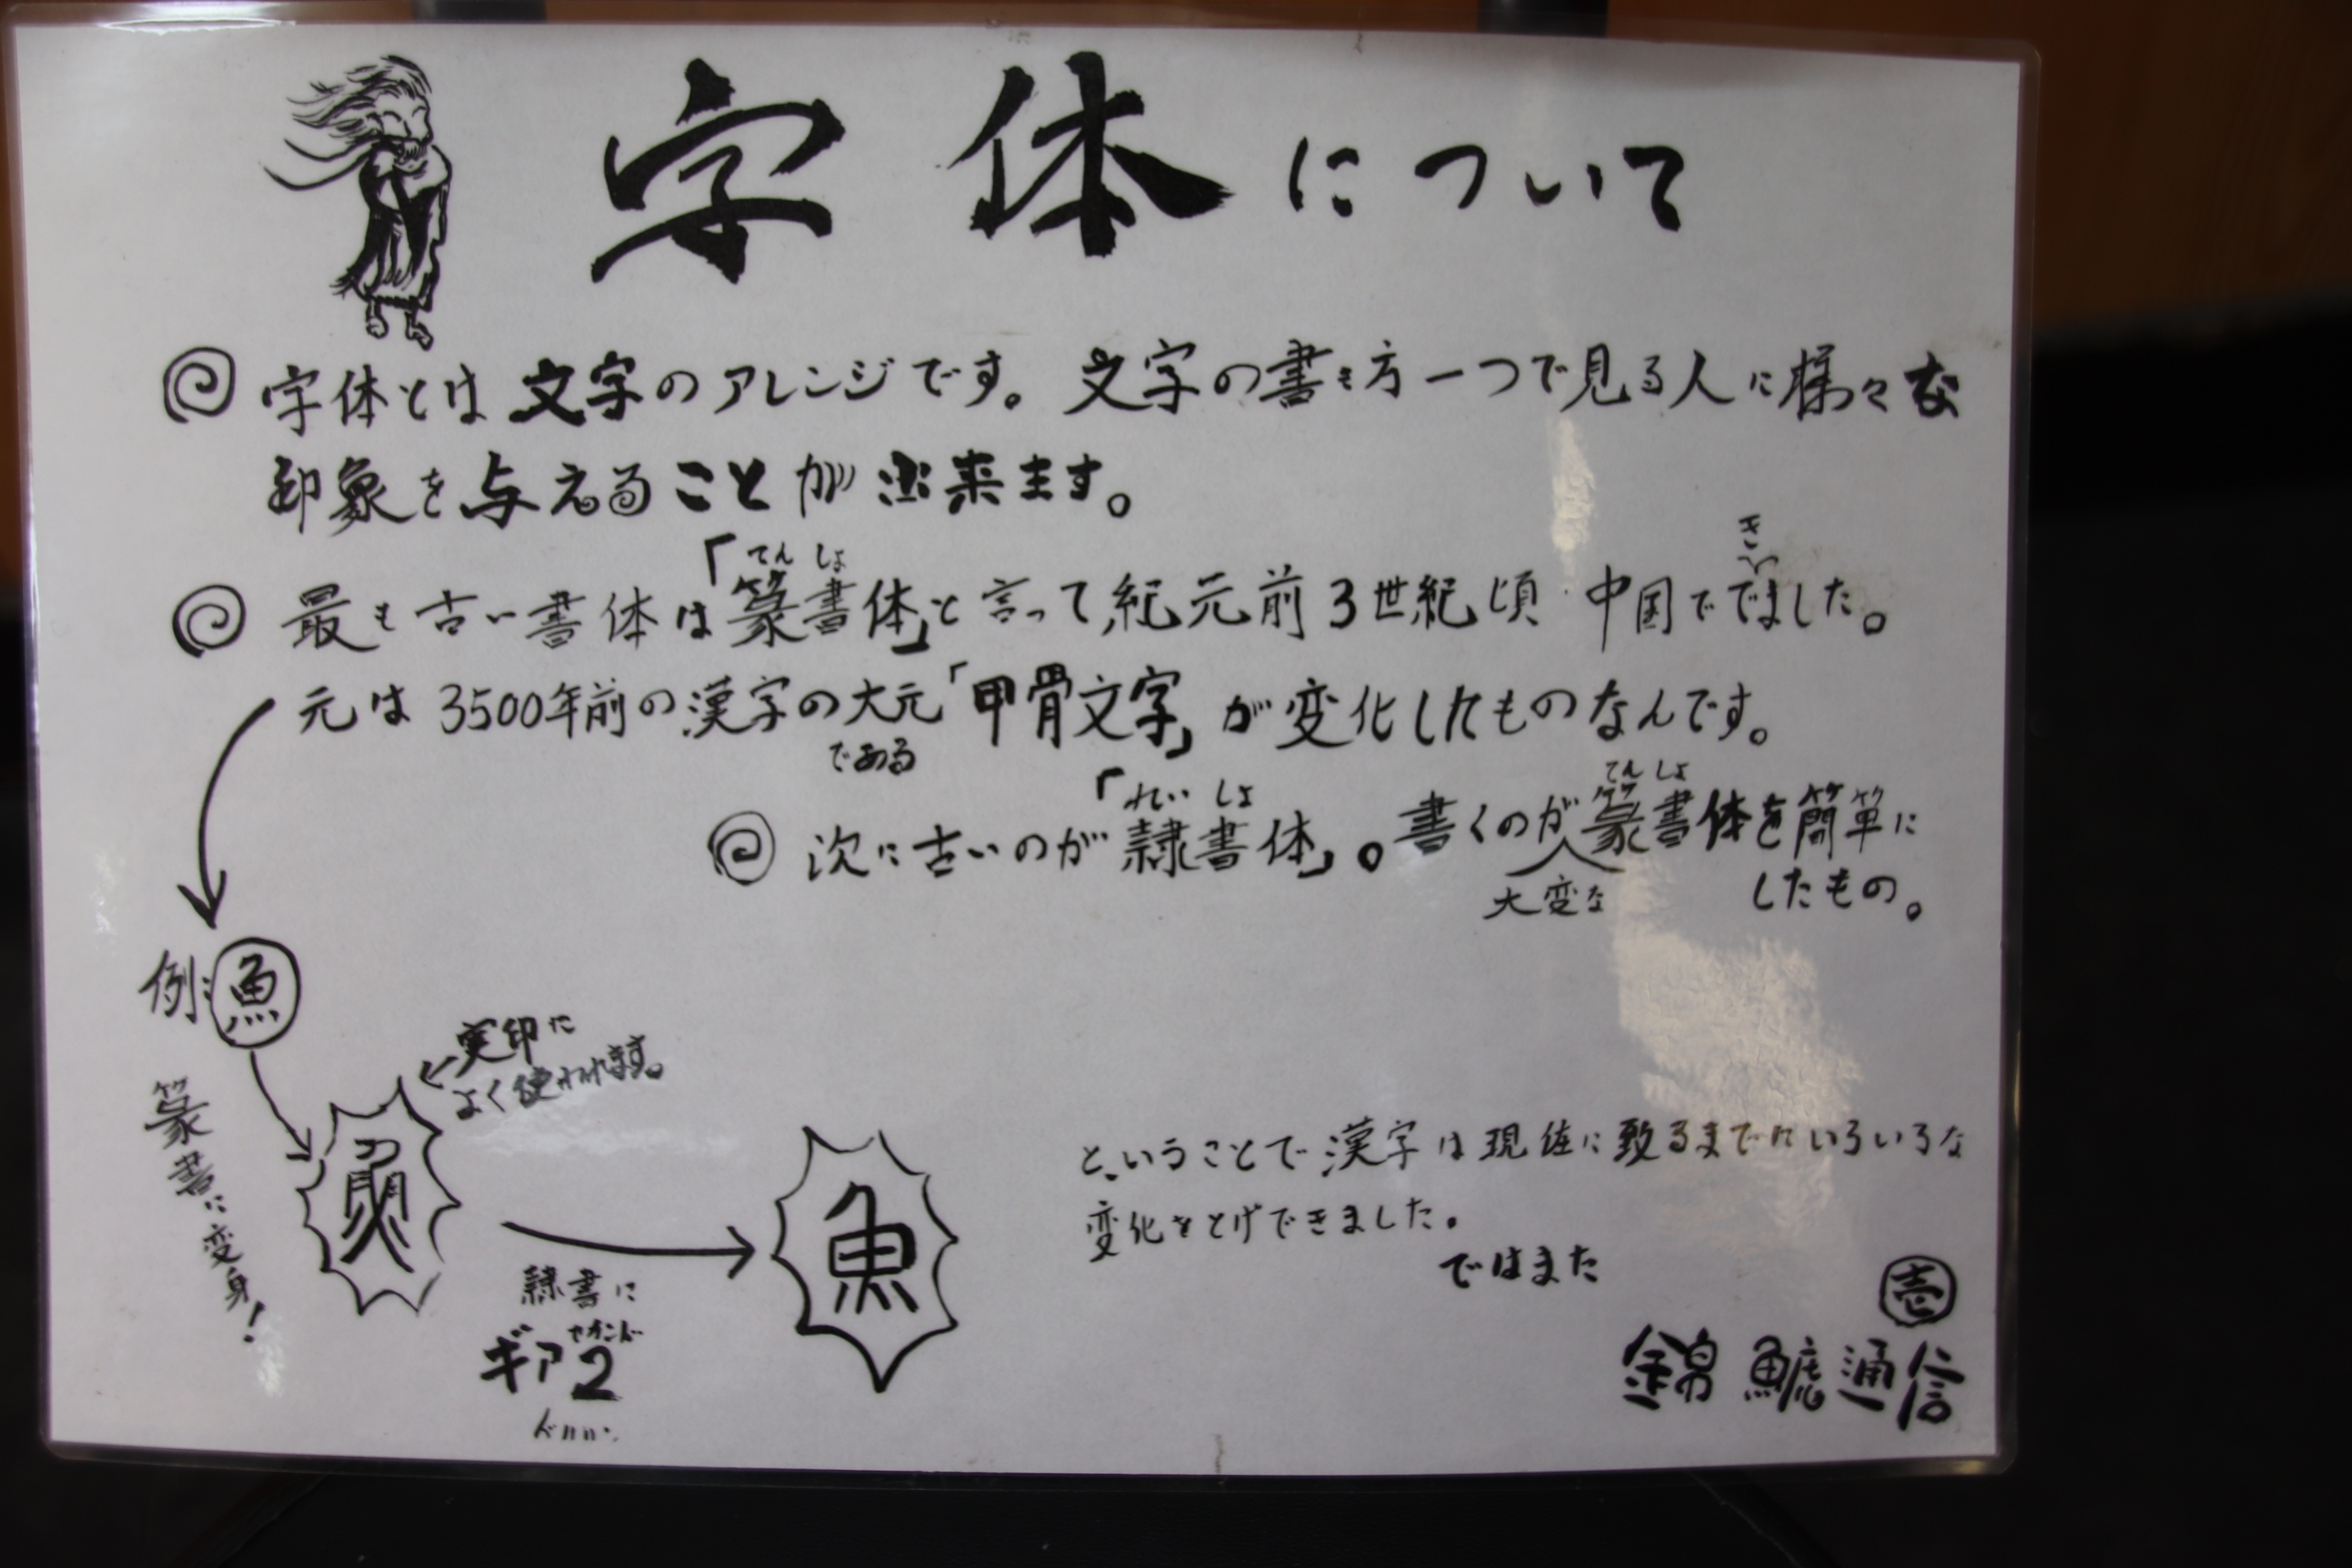 字体について
字体とは文字のアレンジです。文字の書き方一つで見る人に様々な
印象を与えることが出来ます。
最も古い書体は「篆書体」と言って、紀元前3世紀頃 中国でできました。
てんしょ
き
元は3500年前の漢字の大元「甲骨文字」が変化したものなんです。
である
次に古いのが「隷書体」。書くのが篆書体を簡単に
れいしょ
てんしょ
大変な
したもの。
例:魚
実印に
よく使われます。
篆書に変身!
魚
隷書に
ギア2
セカンド
ドドド…
魚
ということで漢字は現在に致るまでにいろいろな
変化をとげてきました。
ではまた
壱
錦鯱通信